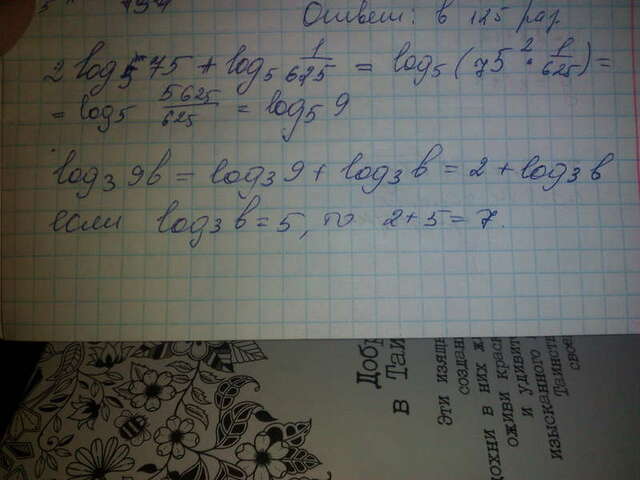 Ответ: в 125 раз
2 log₅ 75 + log₅ 1/625 = log₅ (75² · 1/625) =
= log₅ 5625/625 = log₅ 9
log₃ 9b = log₃ 9 + log₃ b = 2 + log₃ b
если log₃ b = 5, то 2 + 5 = 7.
Добр
в Таи
Эти изящн
создан
в них ж
оживи крас
и удивит
изысканного
Таинств
свое